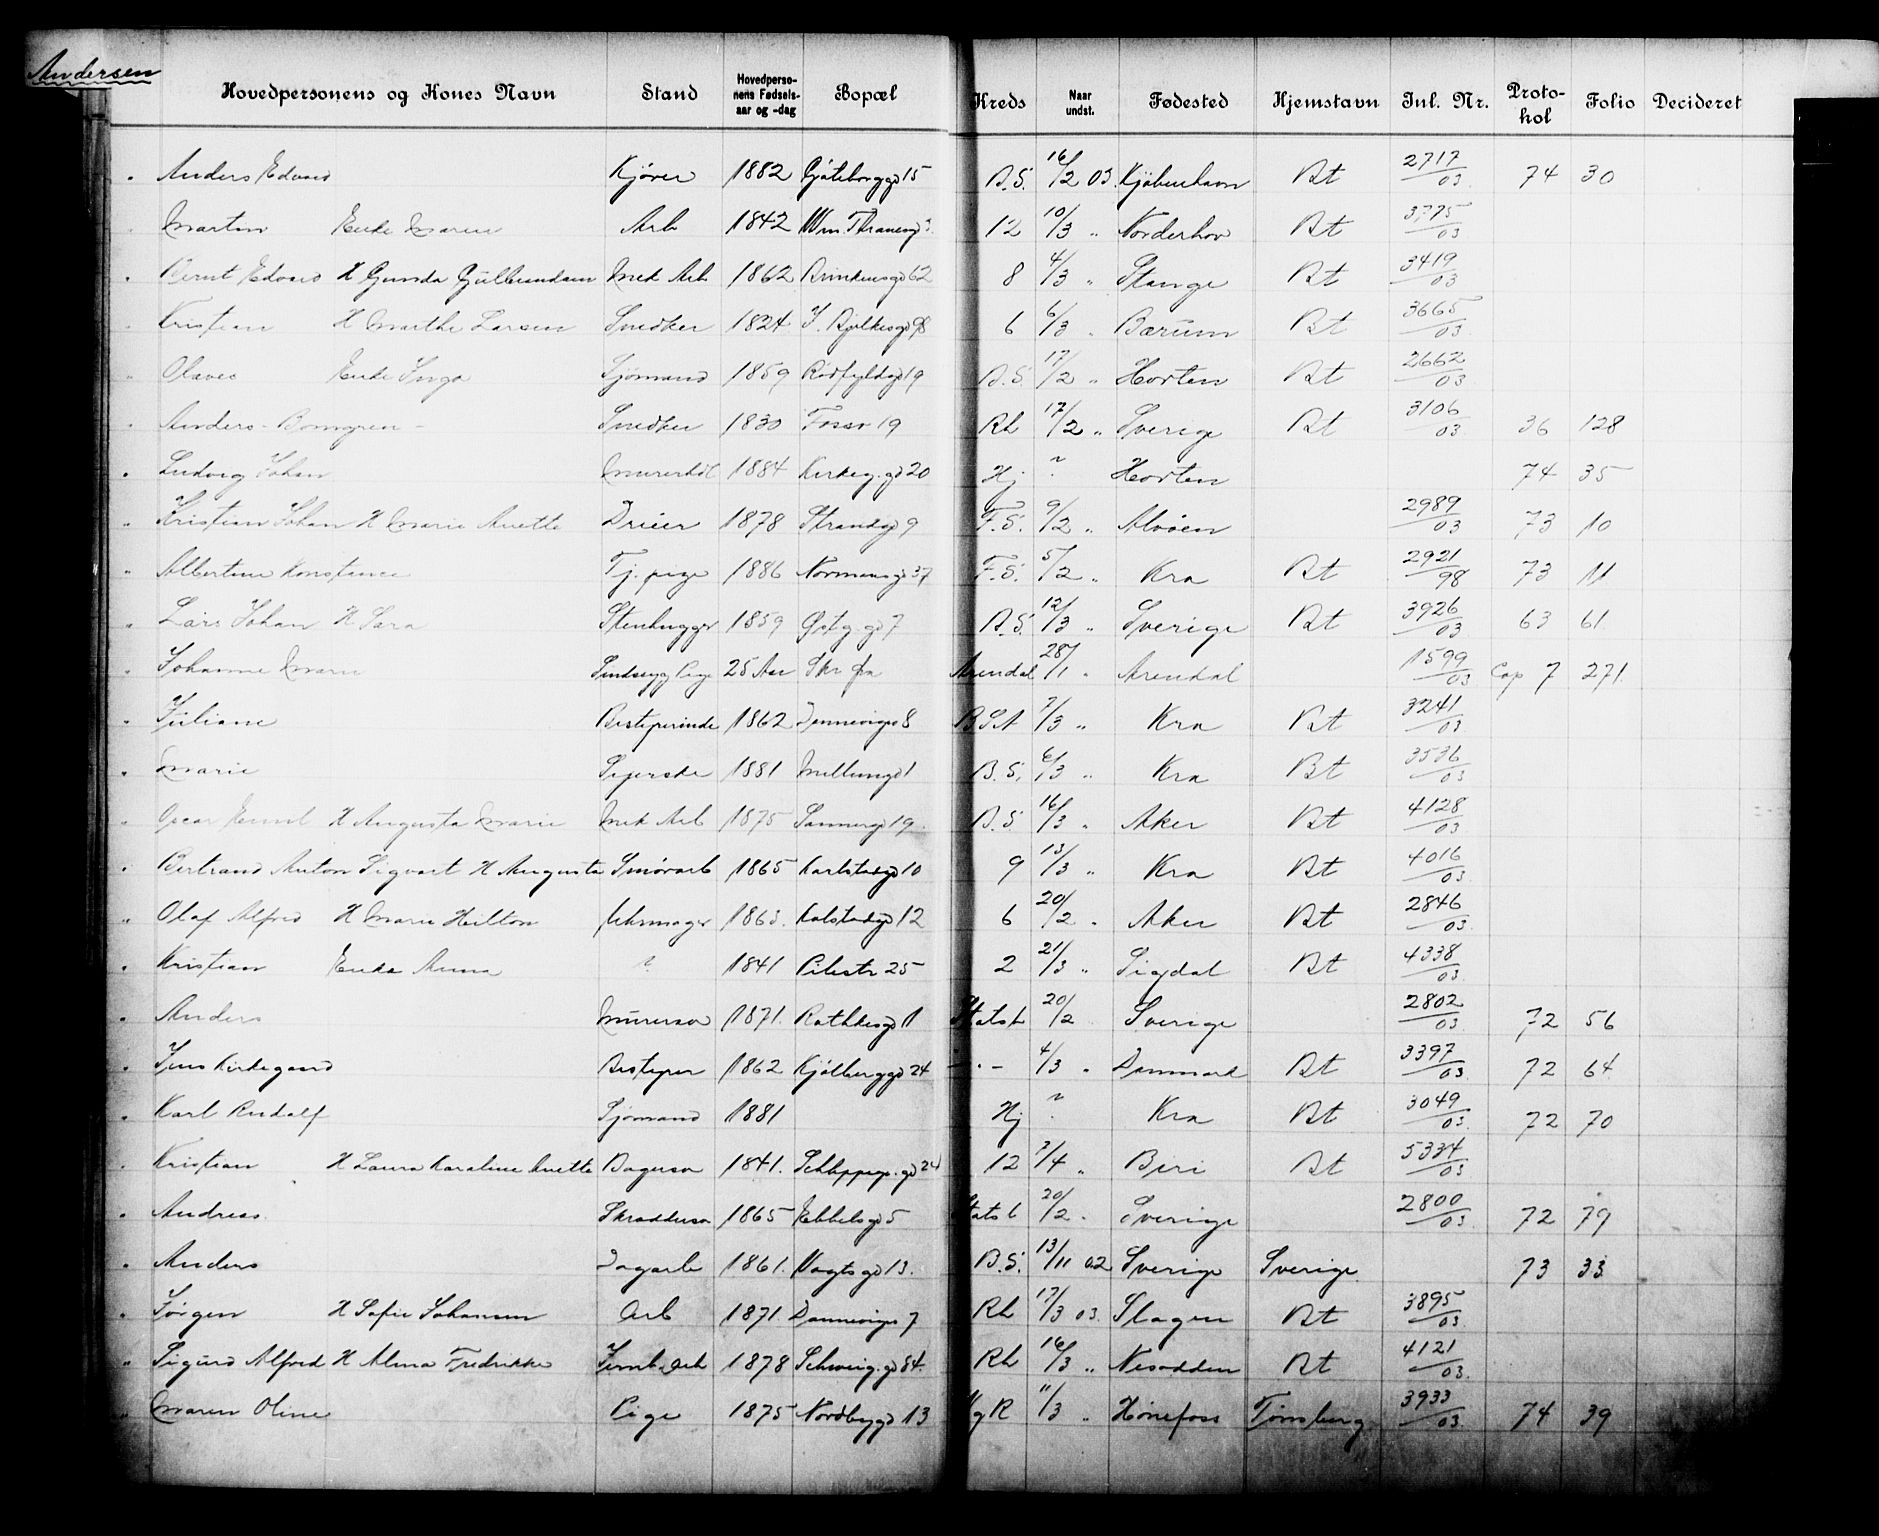 Andersen
Hovedpersonens og Kones Navn Stand Hovedperso-nens Fødsels-aar og -dag Bopæl Kreds Naar undst. Fødested Hjemstavn Jnl. Nr. Proto-kol Folio Decideret
" Anders Edvard Kjører 1882 Gøteborggd 15 B.S. 16/2 03. Kjøbenhavn Bt 2717/03 74 30
" Martin Enke Maren Arb 1842 Wm. Thranesgd 12 10/3 " Norderhov Bt 3775/03
" Bernt Edvard H Gunda Gulbrandsen Mek Arb 1862 Brinkensgd 62 8 4/3 " Stange Bt 3419/03
" Kristian H Marthe Larsen Snedker 1824 J. Bjelkesgd 98 6 6/3 " Bærum Bt 3665/03
" Olaves Enke Inga Sjømand 1859 Rødfyldgd 19 B.S. 17/2 " Horten Bt 2662/03
" Anders - Bomgren - Snedker 1830 Fossv 19 Rh 17/2 " Sverige Bt 3106/03 36 128
" Ludvig Johan 1884 Kirkeg. gd 20 Hj ? Horten 74 35
" Kristian Johan H Marie Anette Dreier 1878 Strandgd 9 F.S. 9/2 " Alvøen 2989/03 73 10
" Albertine Konstance Tj. pige 1886 Normansgd 37 F.S. 5/2 " Kra Bt 2921/98 73 11
" Lars Johan H Sara Stenhugger 1859 Østg. gd 7 B.S. 12/3 " Sverige Bt 3926/03 63 61
" Johanne Marie Sindsyg Pige 25 Aar Skr fra Arendal 28/1 " Arendal 1599/03 Cop 7 271.
" Juliane Bestyrerinde 1862 Dannevigs 8 BSA 7/3 " Kra Bt 3241/03
" Marie Syerske 1881 1 B.S. 6/3 " Kra Bt 3536/03
" Oscar Emil H Augusta Marie Mek Arb 1875 Sannergd 19. B.S. 16/3 " Aker Bt 4128/03
" Bertrand Anton Sigvart H Augusta Smørarb 1865 Karlstadgd 10 9 13/3 " Kra Bt 4016/03
" Olaf Alfred H Marie Hilton Uhrmager 1863. Kalstadgd 12 6 20/2 " Aker Bt 2846/03
" Kristian Enke Anna ? 1841 Pilestr 25 2 21/3 " Sigdal Bt 4338/03
" Anders Murersv 1871. Rathkesgd 1 Statsb 20/2 Sverige 2802/03 72 56
" Jens Kirkegaard Bestyrer 1862 Kjølberggd 24 - " - 4/3 " Danmark Bt 3397/03 72 64
" Karl Rudolf Sjømand 1881 Hj ? Kra Bt 3049/03 72 70
" Kristian H Laura Karoline Anette Bagersv 1841. Schleppegr. gd 24 12 7/4 " Biri Bt 5334/03
" Andreas Skrædersv 1865 Ebbelsgd 5 Statsb 20/2 " Sverige 2800/03 72 79
" Anders Dagarb 1861. Vogtsgd 13. B.S. 13/11 02 Sverige Sverige 73 33
" Jørgen H Sofie Johansen Arb 1871 Dannevigs 7 Rh 17/3 03. Slagen Bt 3895/03
" Sigurd Alfred H Alma Fredrikke Jernb. Arb 1878 Schweig. gd 84. Rh 16/3 " Nesodden Bt 4121/03
" Maren Oline Pige 1875 Nordbygd 13 Vg R 11/3 " Hønefoss Tønsberg 3933/03 74 39